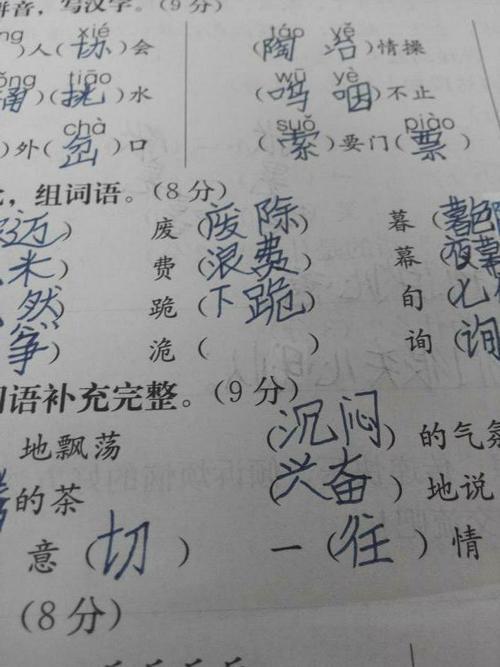 拼音，写汉字。(9分)
xié táo yě
)人(协)会 (陶冶)情操
tiāo wū yè
(挑)水 (呜咽)不止
chà suǒ piào
)外(岔)口 (索)要门(票)
，组词语。(8分)
迈) 废(废除) 暮(暮
米) 费(浪费) 幕(夜幕
然) 跪(下跪) 旬(七
筝) 诡( ) 询(询
词语补充完整。(9分)
地飘荡 (沉闷)的气氛
的茶 (兴奋)地说
意(切) 一(往)情
(8分)